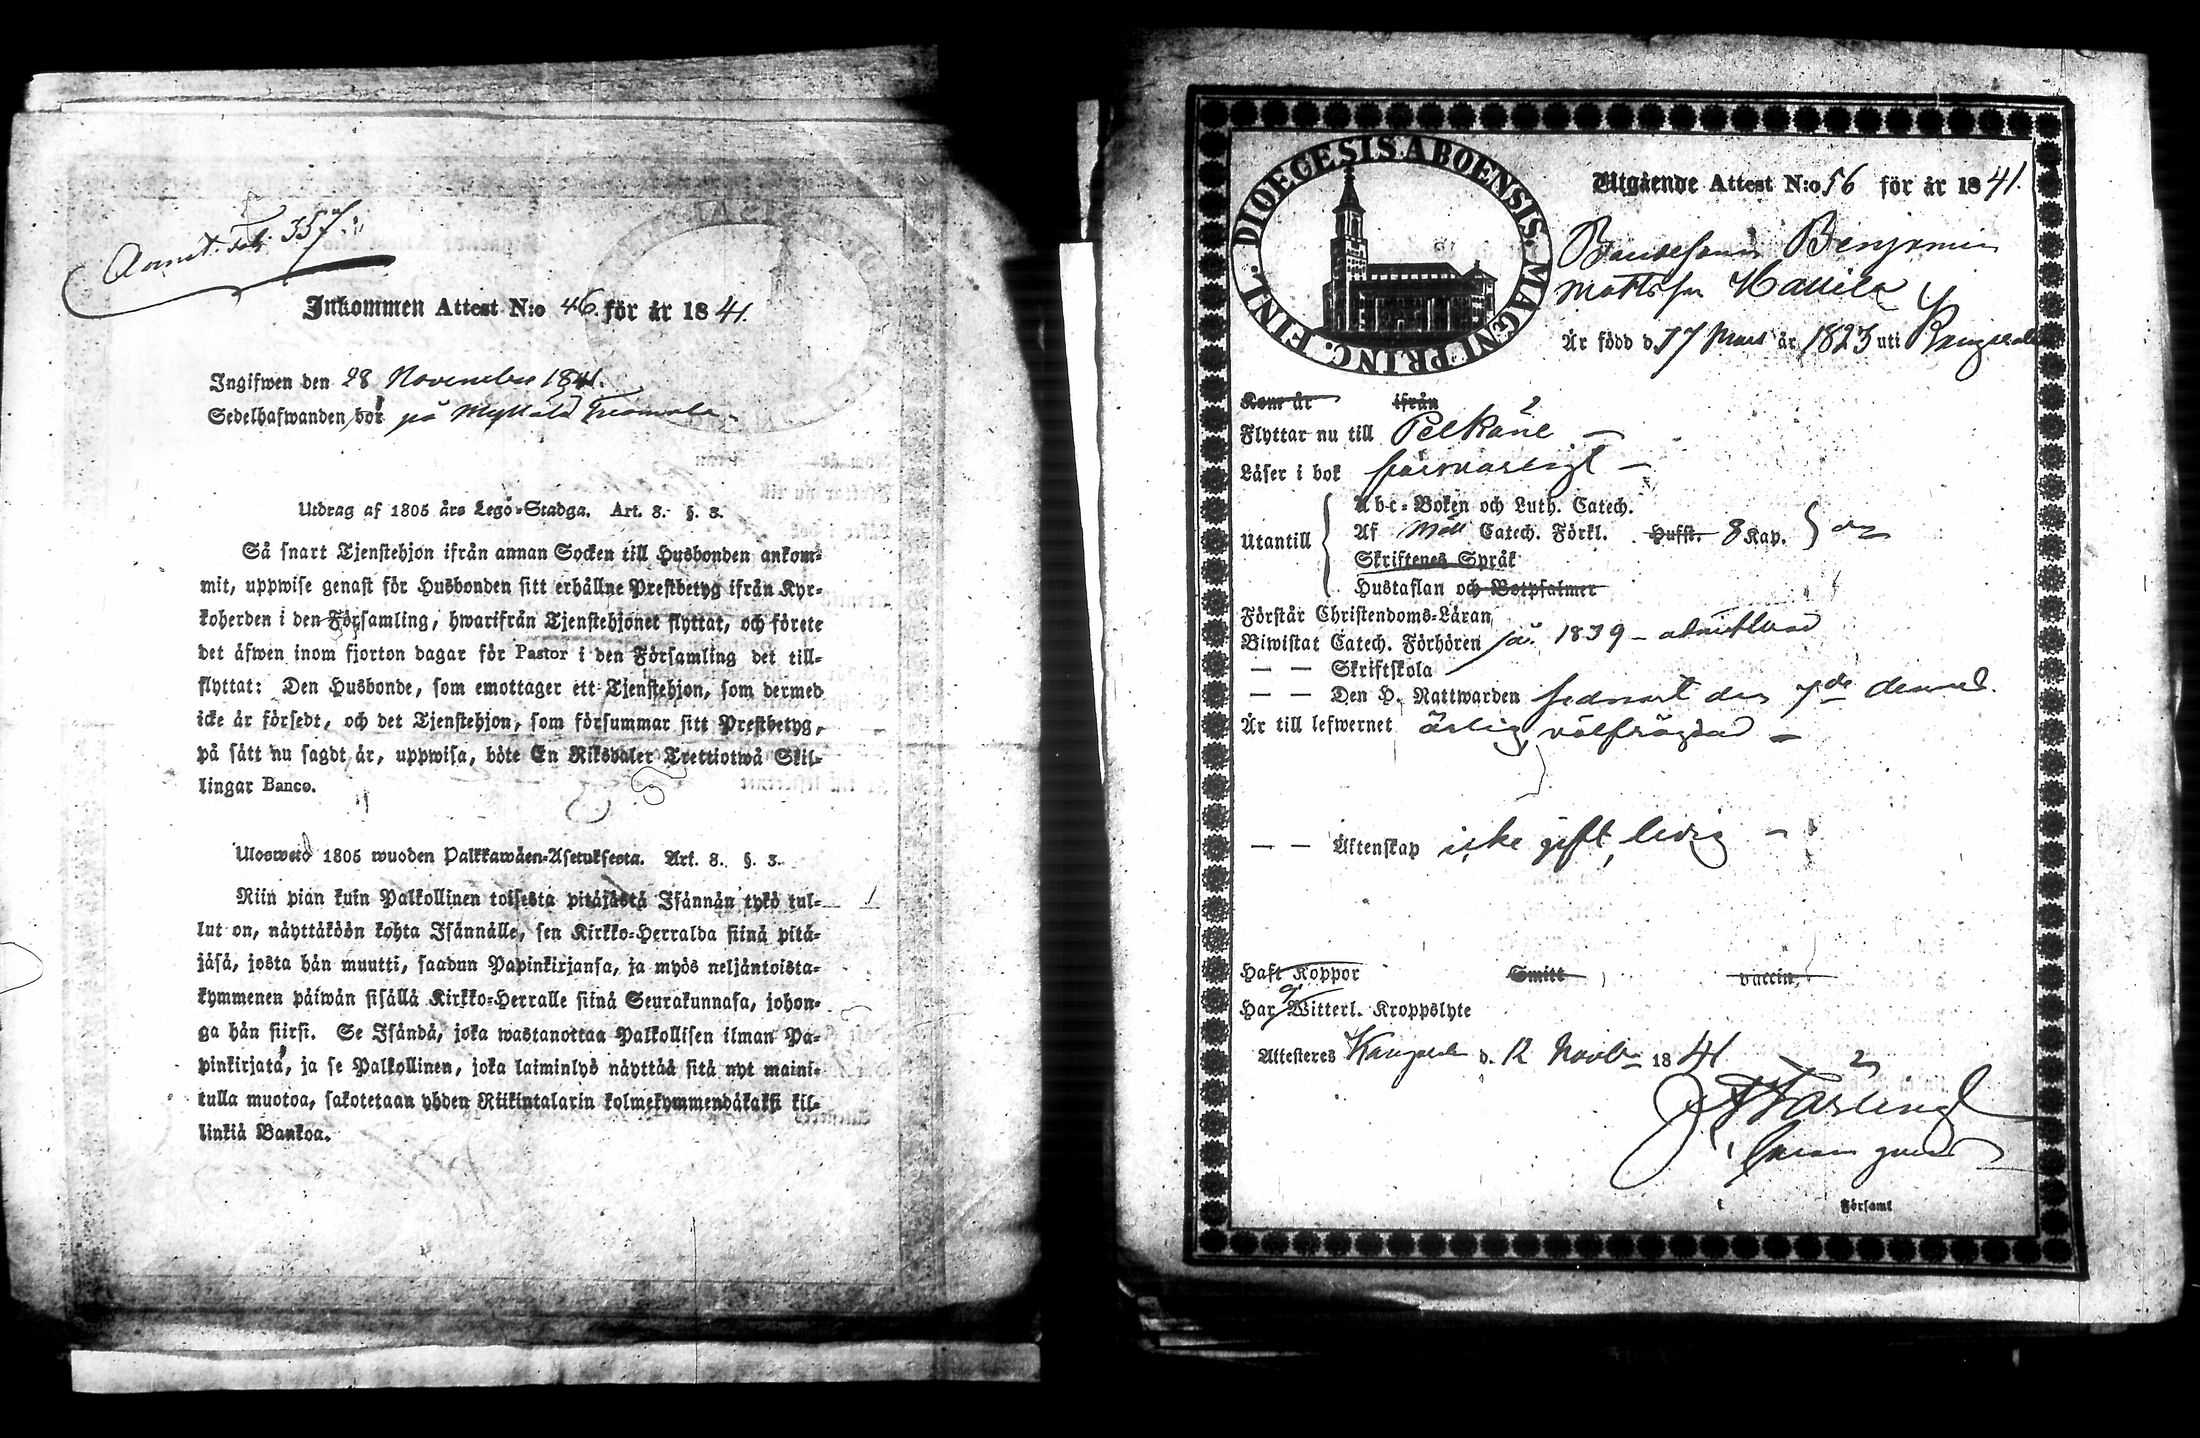 Annot. fol. 357.
Inkommen Attest N:o 46. för år 1841.
Ingifwen den 28 November 1841.
Sedelhafwanden bor på Myttälä
Utdrag af 1805 års Lego-Stadga. Art. 8. §. 3.
Så snart Tjenstehjon ifrån annan Socken till Husbonden ankom-
mit, uppwise genast för Husbonden sitt erhållne Prestbetyg ifrån Kyr-
koherden i den Församling, hwarifrån Tjenstehjonet flyttat, och förete
det äfwen inom fjorton dagar för Pastor i den Församling det till-
flyttat: Den Husbonde, som emottager ett Tjenstehjon, som dermed
icke är försedt, och det Tjenstehjon, som försummar sitt Prestbetyg,
på sätt nu sagdt är, uppwisa, böte En Riksdaler Trettiotwå Skil-
lingar Banco.
Uloswetö 1805 wuoden Palkkawäen-Asetuksesta. Art. 8. §. 3.
Niin pian kuin Palkollinen toisesta pitäjästä Isännän tykö tul-
lut on, näyttäköön kohta Isännälle, sen Kirkko-Herralda siinä pitä-
jäsä, josta hän muutti, saadun Papinkirjansa, ja myös neljäntoista-
kymmenen päiwän sisällä Kirkko-Herralle siinä Seurakunnasa, johon-
ga hän siirsi. Se Isändä, joka wastanottaa Palkollisen ilman Pa-
pinkirjatå, ja se Palkollinen, joka laiminlyö näyttää sitä nyt maini-
tulla muotoa, sakotetaan yhden Riikintalarin kolmekymmendäkaksi kil-
linkiä Bankoa.
DIOECESIS ABOENSIS. MAGNI PRINC. FINL.
Utgående Attest N:o 56 för år 1841.
Bondesonen Benjamin
Mattsson
Är född d. 17 Mars år 1823 uti Kangasala
Kom år ifrån
Flyttar nu till Pelkäne
Läser i bok försvarligt
Utantill
Abc-Boken och Luth. Catech.
Af Möll Catech. Förkl. Hufst. 8 Kap.
Skriftenes Språk
Hustaflan och Botpsalmer
Förstår Christendoms-Läran
Biwistat Catech. Förhören 1839 - admitterad
— — Skriftskola
— — Den H. Nattwarden sednast den 7de dennes.
Är till lefwernet ärlig, välfrägdad
— — Äktenskap icke gift, ledig
Haft Koppor Smitt vaccin.
Har ej Witterl. Kroppslyte
Attesteres Kangasala d. 12 Novbr 1841
i Församl